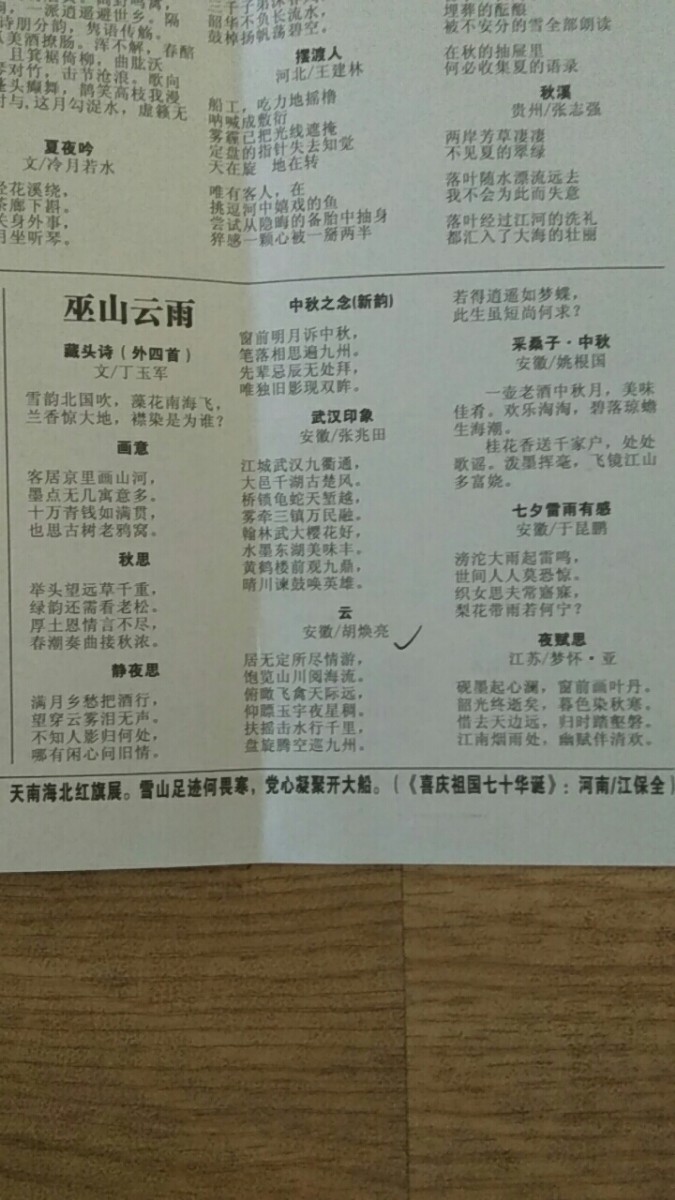 一派逍遥避世乡。隔
诗朋分韵，隽语传觞。
美酒撩肠。浑不解，春醅
且箕据倚柳，曲肱沃
对竹，击节沧浪。歌向
蓬头癫舞，鹊笑高枝我漫
时与，这月勾浞水，虚籁无
夏夜吟
文/冷月若水
径花溪绕，
茶廊下斟。
关身外事，
月坐听琴。
韶华不负长流水，
鼓棹扬帆荡碧空。
摆渡人
河北/王建林
船工，吃力地摇橹
呐喊成敷衍
雾霾已把光线遮掩
定盘的指针失去知觉
天在旋　地在转
唯有客人，在
挑逗河中嬉戏的鱼
尝试从隐晦的备胎中抽身
猝感一颗心被一掰两半
埋葬的酝酿
被不安分的雪全部朗读
在秋的抽屉里
何必收集夏的语录
秋溪
贵州/张志强
两岸芳草凄凄
不见夏的翠绿
落叶随水漂流远去
我不会为此而失意
落叶经过江河的洗礼
都汇入了大海的壮丽
巫山云雨
藏头诗（外四首）
文/丁玉军
雪韵北国吹，藻花南海飞，
兰香惊大地，襟染是为谁？
画意
客居京里画山河，
墨点无几寓意多。
十万青钱如满贯，
也思古树老鸦窝。
秋思
举头望远草千重，
绿韵还需看老松。
厚土恩情言不尽，
春潮奏曲接秋浓。
静夜思
满月乡愁把酒行，
望穿云雾泪无声。
不知人影归何处，
哪有闲心问旧情。
中秋之念(新韵)
窗前明月诉中秋，
笔落相思遍九州。
先辈忌辰无处拜，
唯独旧影现双眸。
武汉印象
安徽/张兆田
江城武汉九衢通，
大邑千湖古楚风。
桥锁龟蛇天堑越，
雾牵三镇万民融。
翰林武大樱花好，
水墨东湖美味丰。
黄鹤楼前观九鼎，
晴川谏鼓唤英雄。
云
安徽/胡焕亮
居无定所尽情游，
饱览山川阅海流。
俯瞰飞禽天际远，
仰瞟玉宇夜星稠。
扶摇击水行千里，
盘旋腾空巡九州。
若得逍遥如梦蝶，
此生虽短尚何求？
采桑子·中秋
安徽/姚根国
一壶老酒中秋月，美味
佳肴。欢乐淘淘，碧落琼蟾
生海潮。
桂花香送千家户，处处
歌谣。泼墨挥毫，飞镜江山
多富娆。
七夕雷雨有感
安徽/于昆鹏
滂沱大雨起雷鸣，
世间人人莫恐惊。
织女思夫常寤寐，
梨花带雨若何宁？
夜赋思
江苏/梦怀·亚
砚墨起心澜，窗前画叶丹。
韶光终逝矣，暮色染秋寒。
惜去天边远，归时踏壑磐。
江南烟雨处，幽赋伴清欢。
天南海北红旗展。雪山足迹何畏寒，党心凝聚开大船。（《喜庆祖国七十华诞》：河南/江保全）